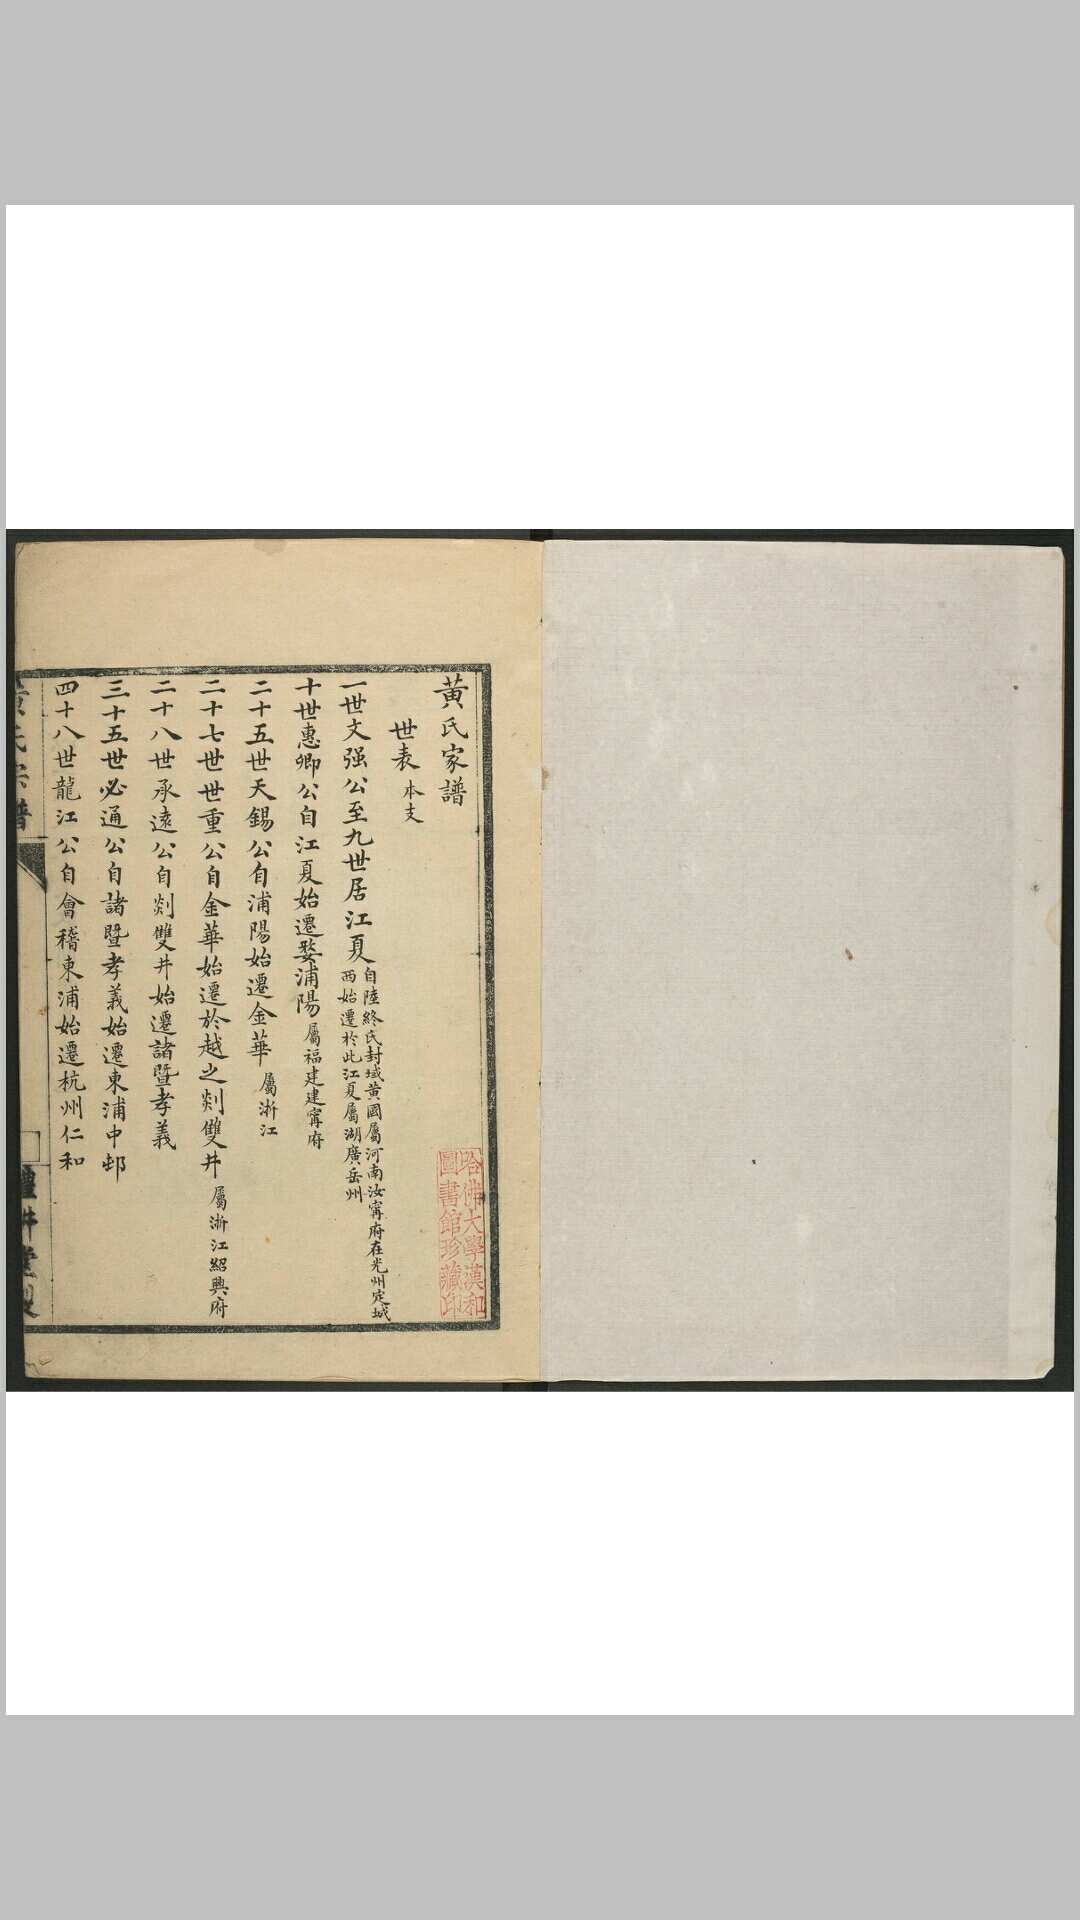 黃氏家譜
世表 本支
一世文强公至九世居江夏 自陸終氏封域黃國屬河南汝寗府在光州定城西始遷於此江夏屬湖廣岳州
十世惠卿公自江夏始遷婺浦陽 屬福建建寗府
二十五世天錫公自浦陽始遷金華 屬浙江
二十七世世重公自金華始遷於越之剡雙井 屬浙江紹興府
二十八世承遠公自剡雙井始遷諸暨孝義
三十五世必通公自諸暨孝義始遷東浦中邨
四十八世龍江公自會稽東浦始遷杭州仁和
黃氏宗譜
井堂
哈佛大學漢和
圖書館珍藏印